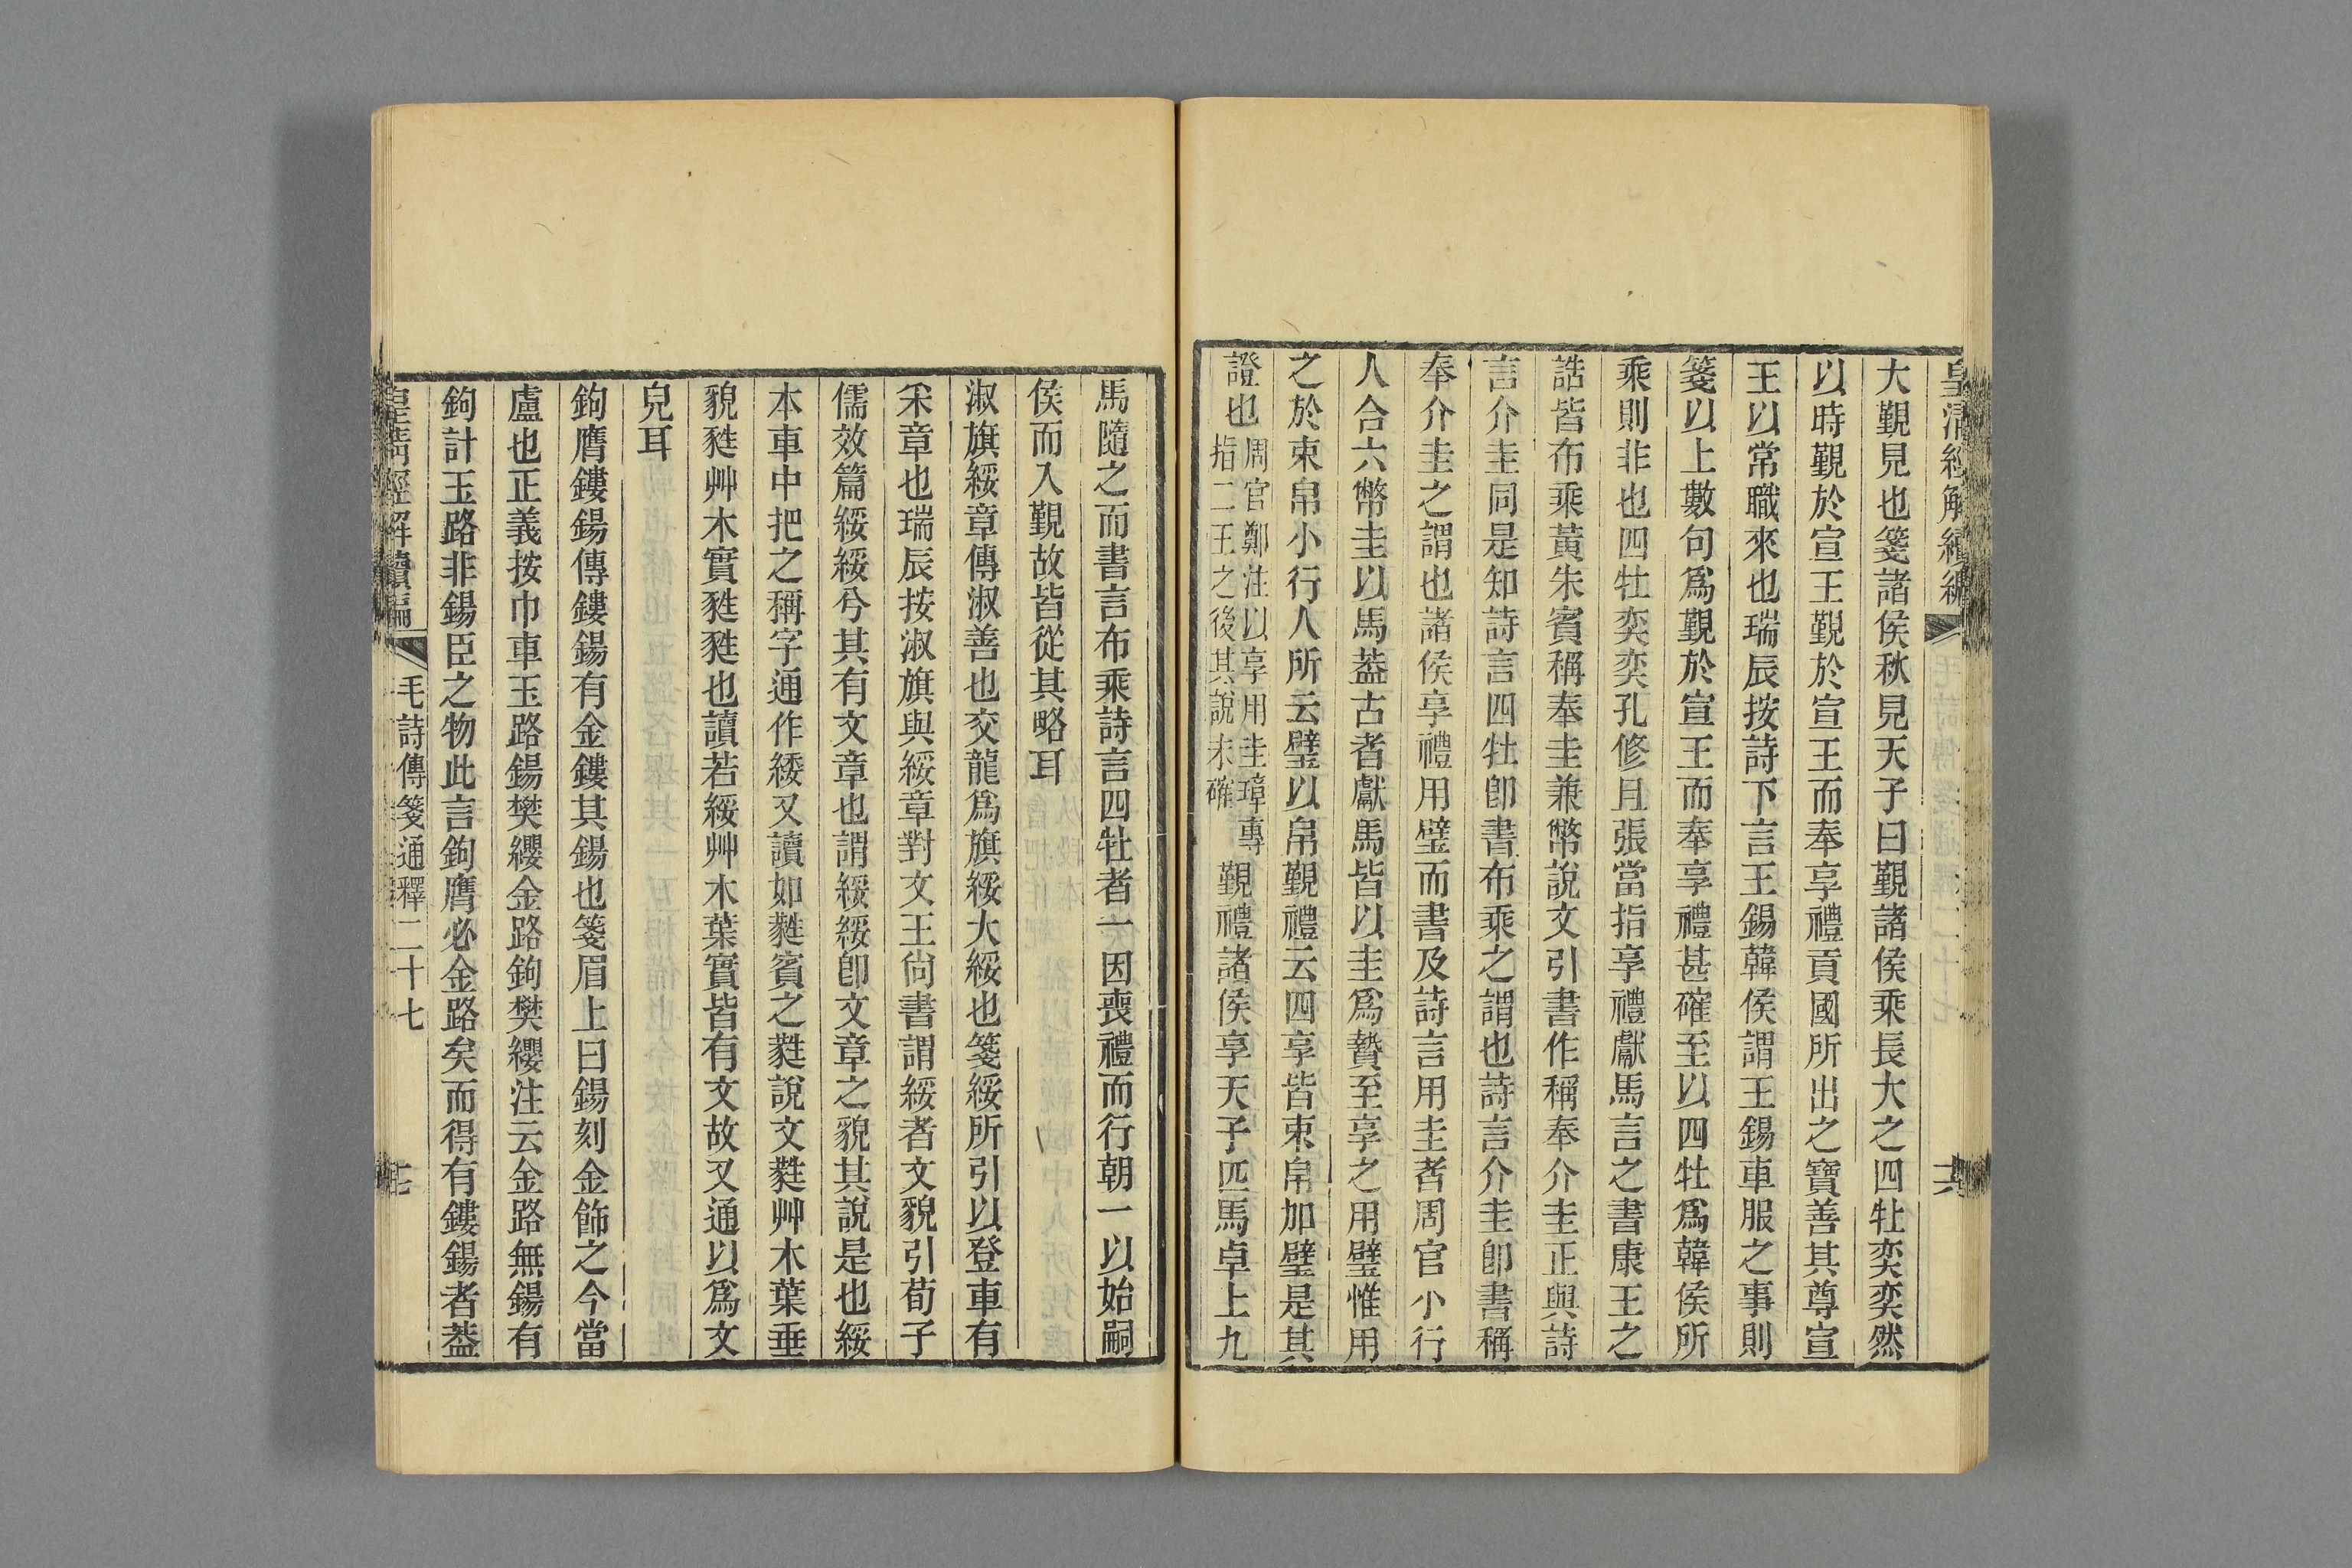 皇清經解續編
大覲見也箋諸侯秋見天子曰覲諸侯乘長大之四牡奕奕然
以時覲於宣王覲於宣王而奉享禮貢國所出之寶善其尊宣
王以常職來也瑞辰按詩下言王錫韓侯謂王錫車服之事則
箋以上數句爲覲於宣王而奉享禮甚確至以四牡爲韓侯所
乘則非也四牡奕奕孔修且張當指享禮獻馬言之書康王之
誥皆布乘黃朱賓稱奉圭兼幣說文引書作稱奉介圭正與詩
言介圭同是知詩言四牡卽書布乘之謂也詩言介圭卽書稱
奉介圭之謂也諸侯享禮用璧而書及詩言用圭者周官小行
人合六幣圭以馬葢古者獻馬皆以圭爲贄至享之用璧惟用
之於束帛小行人所云璧以帛覲禮云四享皆束帛加璧是其
證也周官鄭注以享用圭璋專指二王之後其說未確覲禮諸侯享天子匹馬卓上九
馬隨之而書言布乘詩言四牡者一因喪禮而行朝一以始嗣
侯而入覲故皆從其略耳
淑旗綏章傳淑善也交龍爲旗綏大綏也箋綏所引以登車有
采章也瑞辰按淑旗與綏章對文王尙書謂綏者文貌引荀子
儒效篇綏綏兮其有文章也謂綏綏卽文章之貌其說是也綏
本車中把之稱字通作緌又讀如蕤賓之蕤說文蕤艸木葉垂
貌甤艸木實甤甤也讀若綏艸木葉實皆有文故又通以爲文
皃耳
鉤膺鏤鍚傳鏤鍚有金鏤其鍚也箋眉上曰鍚刻金飾之今當
盧也正義按巾車玉路鍚樊纓金路鉤樊纓注云金路無鍚有
鉤計玉路非鍚臣之物此言鉤膺必金路矣而得有鏤鍚者葢
皇清經解續編 毛詩傳箋通釋二十七